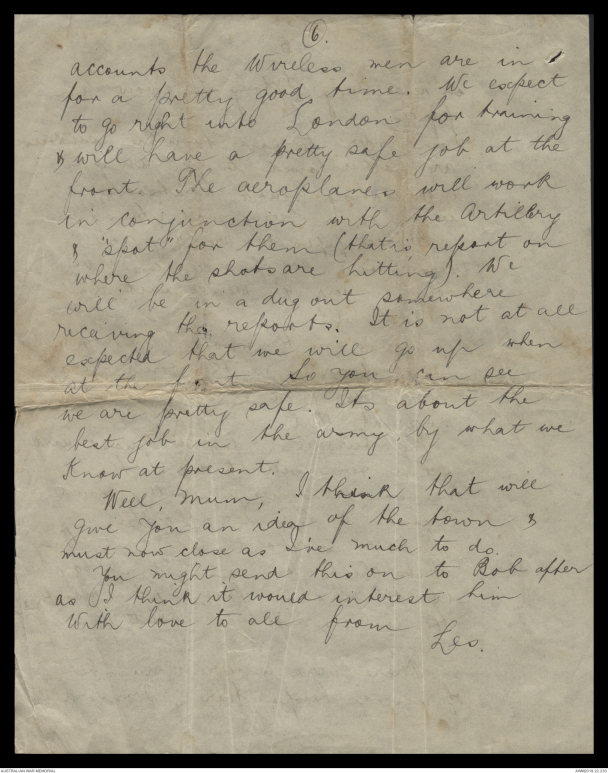 6.
accounts the Wireless men are in
for a pretty good time. We expect
to go right into London for training
& will have a pretty safe job at the
front. The aeroplanes will work
in conjunction with the Artillery
& "spot" for them (that is report on
where the shots are hitting). We
will be in a dug out somewhere
receiving the reports. It is not at all
expected that we will go up when
at the front. So you can see
we are pretty safe. Its about the
best job in the army by what we
know at present.
Well, Mum, I think that will
give you an idea of the town &
must now close as I've much to do.
You might send this on to Bob after
as I think it would interest him
With love to all from
Les.
AUSTRALIAN WAR MEMORIAL